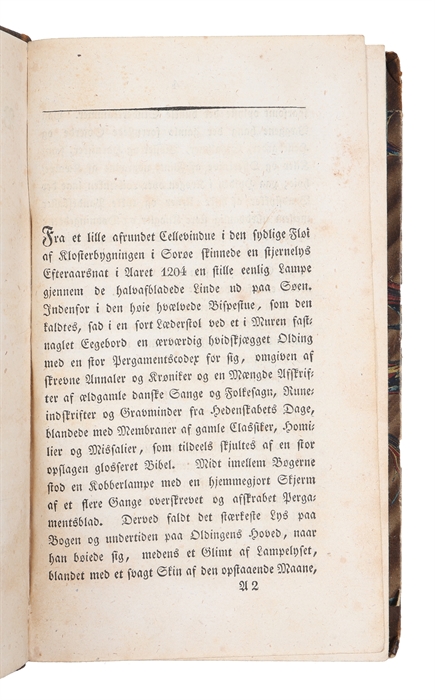 Fra et lille afrundet Cellevindue i den sydlige Fløi
af Klosterbygningen i Sorøe skinnede en stjernelys
Efteraarsnat i Aaret 1204 en stille eenlig Lampe
gjennem de halvafbladede Linde ud paa Søen.
Indenfor i den høie hvælvede Bispestue, som den
kaldtes, sad i en sort Læderstol ved et i Muren fast-
naglet Eegebord en ærværdig hvidskjægget Olding
med en stor Pergamentscodex for sig, omgiven af
skrevne Annaler og Krøniker og en Mængde Afskrif-
ter af ældgamle danske Sange og Folkesagn, Rune-
indskrifter og Gravminder fra Hedenskabets Dage,
blandede med Membraner af gamle Classiker, Homi-
lier og Missalier, som tildeels skjultes af en stor
opslagen glosseret Bibel. Midt imellem Bøgerne
stod en Kobberlampe med en hjemmegjort Skjerm
af et flere Gange overskrevet og afskrabet Perga-
mentsblad. Derved faldt det stærkeste Lys paa
Bogen og undertiden paa Oldingens Hoved, naar
han bøiede sig, medens et Glimt af Lampelyset,
blandet med et svagt Skin af den opstaaende Maane,
A 2